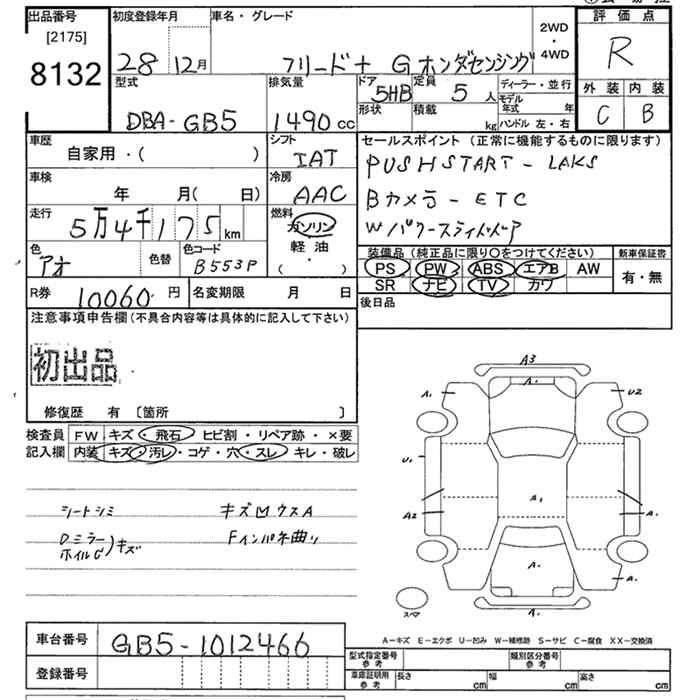 出品番号
[2175]
8132
初度登録年月
28 12月
車名・グレード
フリード+ Gホンダセンシング
2WD
・
4WD
評価点
R
外装 内装
C B
型式
DBA-GB5
排気量
1490 cc
ドア
5HB
定員
5 人
形状
積載
kg
ディーラー・並行
モデル年式 年
ハンドル 左・右
車歴
自家用・( )
シフト
IAT
車検
年 月( 日)
冷房
AAC
走行
5万4千175km
燃料
ガソリン
軽油
( ・ )
色
アオ
色替
色コード
B553P
R券
10060円
名変期限 月 日
セールスポイント (正常に機能するものに限ります)
PUSHSTART - LAKS
Bカメラ - ETC
Wパワースライドドア
装備品 (純正品に限り○をつけてください)
PS PW ABS エアB AW
SR ナビ TV カワ
新車保証書
有・無
後日品
注意事項申告欄(不具合内容等は具体的に記入して下さい)
初出品
修復歴 有 〔箇所 〕
検査員記入欄
FW キズ・飛石・ヒビ割・リペア跡・×要
内装 キズ・汚レ・コゲ・穴・スレ・キレ・破レ
シートシミ
キズMウスA
Dミラー
ホイルC)キズ
Fインパネ曲リ
A3
A.
A1
U2
U1
A1
A2
A.
A.
A.
スペア
A.
A-キズ E-エクボ U-凹み W-補修跡 S-サビ C-腐食 XX-交換済
車台番号
GB5-1012466
登録番号
型式指定番号
参考
類別区分番号
参考
車庫証明用
参考
長さ cm 幅 cm 高さ cm